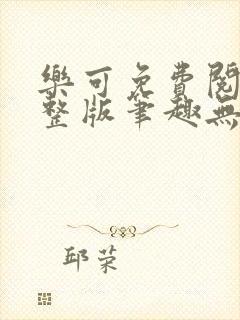 樂可免費閱
整版筆趣無
邱荣